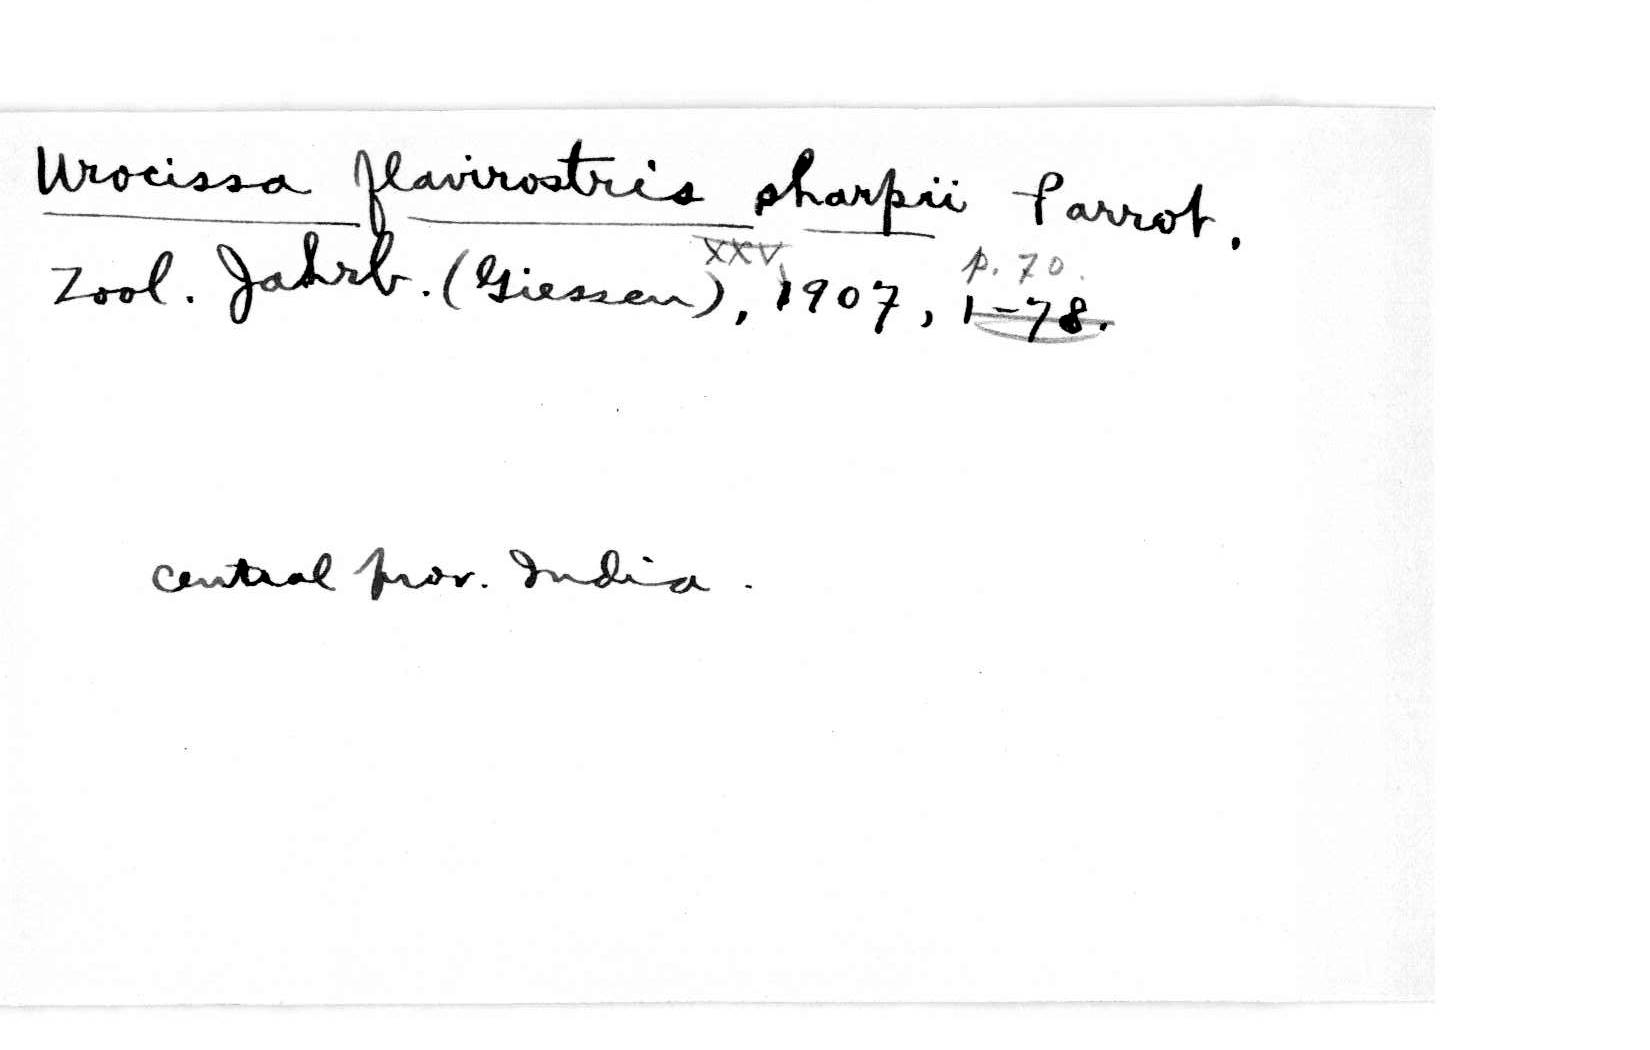 Urocissa flavirostris sharpii Parrot.
XXV, p. 70.
Zool. Jahrb. (Giessen), 1907, 1-78.
central prov. India.